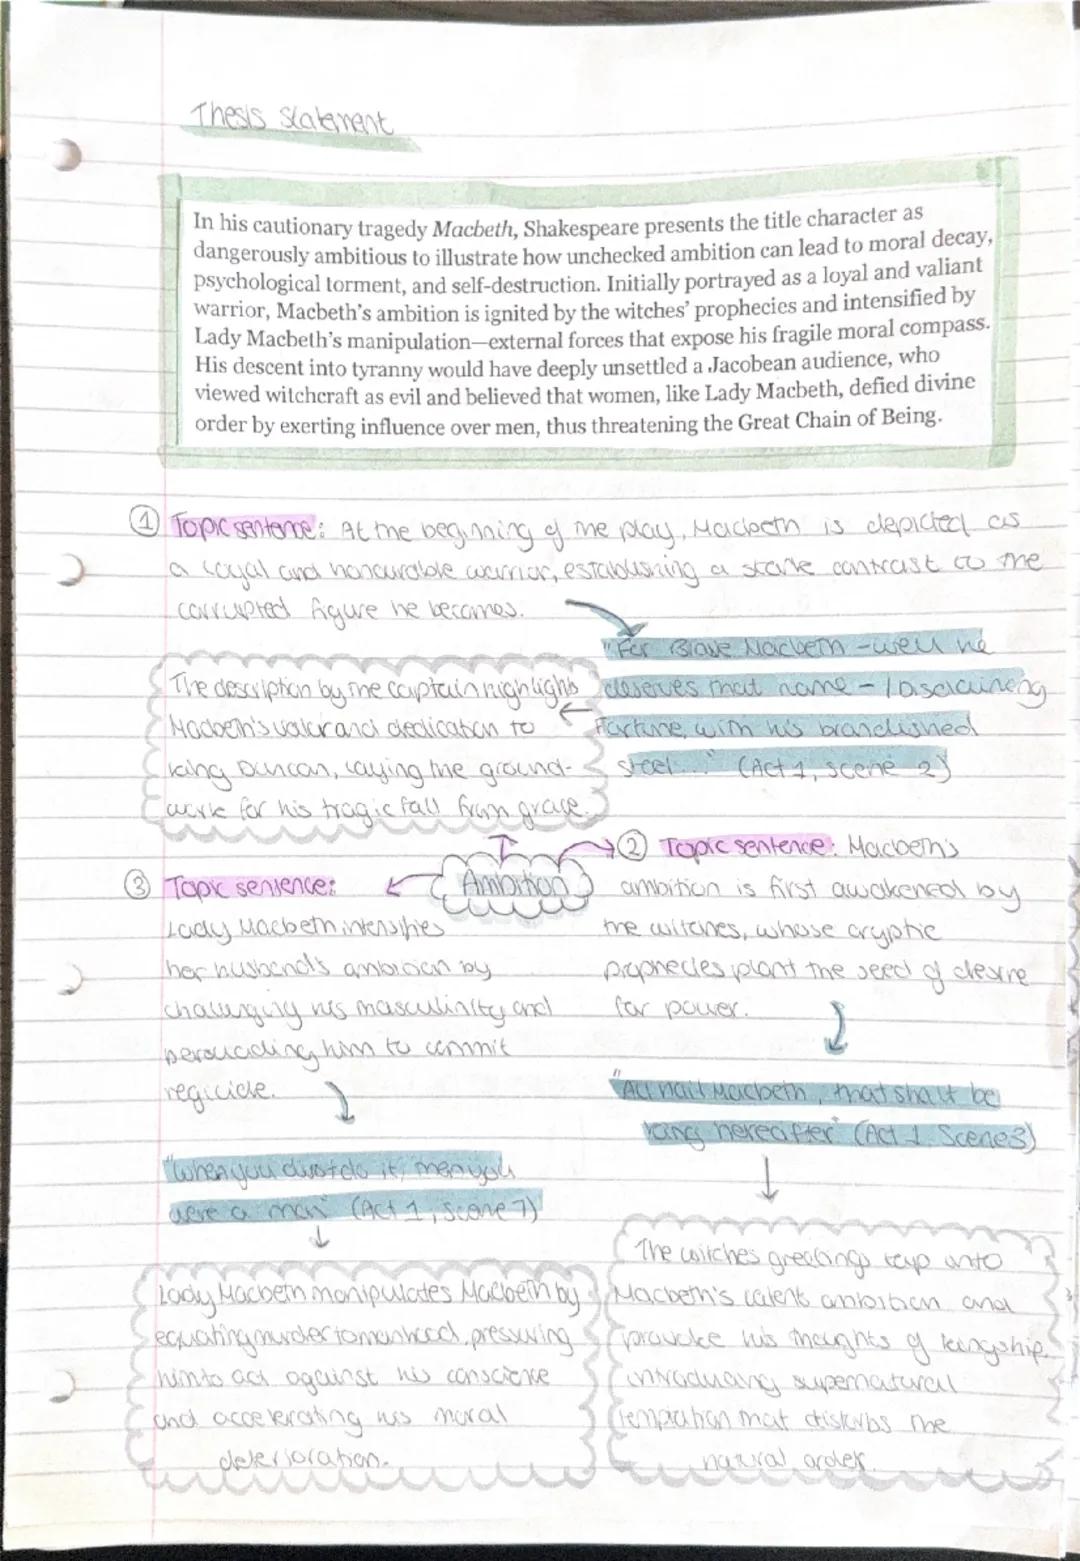 Thesis statement
In his cautionary tragedy Macbeth, Shakespeare presents the title character as
dangerously ambitious to illustrate how unchecked ambition can lead to moral decay,
psychological torment, and self-destruction. Initially portrayed as a loyal and valiant
warrior, Macbeth's ambition is ignited by the witches' prophecies and intensified by
Lady Macbeth's manipulation—external forces that expose his fragile moral compass.
His descent into tyranny would have deeply unsettled a Jacobean audience, who
viewed witchcraft as evil and believed that women, like Lady Macbeth, defied divine
order by exerting influence over men, thus threatening the Great Chain of Being.
① Topic sentence: At the beginning of the play, Macbeth is depicted as
a loyal and honourable warrior, establishing a stark contrast to the
corrupted figure he becomes.
"For Brave Macbeth - well he
deserves that name - / Disdaineng
Fortune, with his brandished
steel..." (Act 1, scene 2)
The description by the captain highlights
Macbeth's valor and dedication to
king Duncan, laying the ground-
work for his tragic fall from grace.
Ambition
② Topic sentence: Macbeth's
ambition is first awakened by
the witches, whose cryptic
prophecies plant the seed of desire
for power.
"All hail Macbeth, that shalt be
king hereafter" (Act 1 Scene 3)
The witches greetings tap into
Macbeth's latent ambition and
provoke his thoughts of kingship,
introducing supernatural
temptation that disturbs the
natural order.
③ Topic sentence:
Lady Macbeth intensifies
her husband's ambition by
challenging his masculinity and
persuading him to commit
regicide.
"When you durst do it, then you
were a man" (Act 1, scene 7)
Lady Macbeth manipulates Macbeth by
equating murder to manhood, pressuring
him to act against his conscience
and accelerating his moral
deterioration.